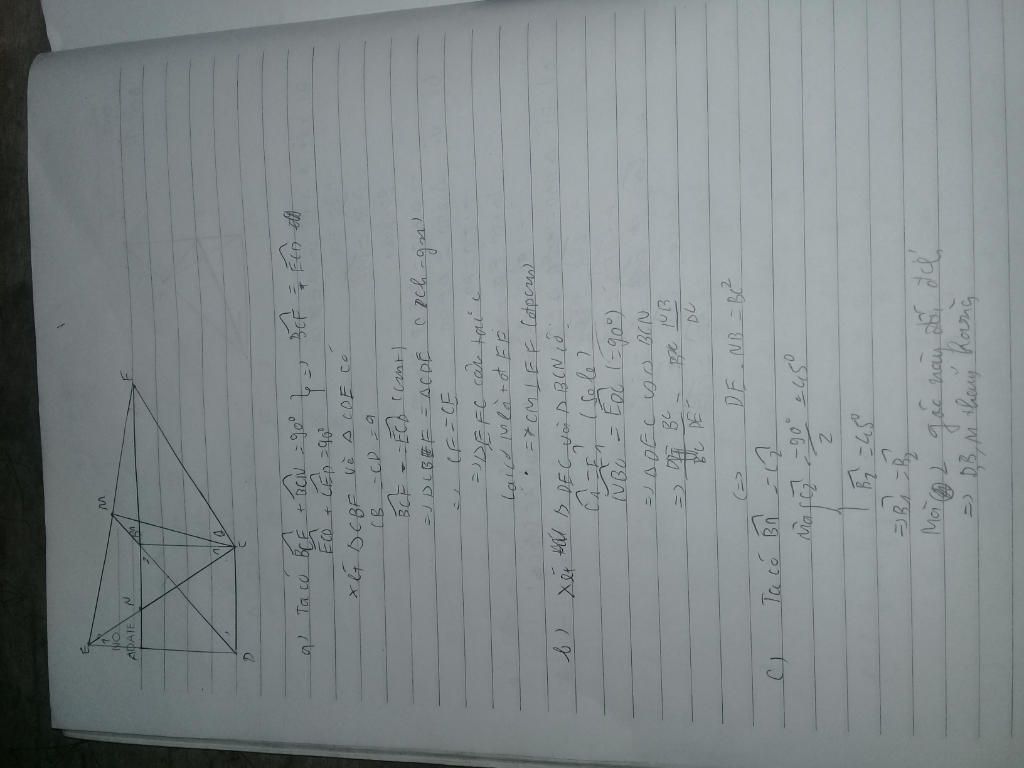 E
M
F
A
N
B
D
C
a) Ta có BCF + BCN = 90°
ECD + = 90° } => BCF = ECD
Xét △CBF và △CDE có
CB = CD = a
BCF = ECD (cmt)
=> △CBF = △CDE
=> CF = CE
=> △EFC cân tại C
Lại có M là td EF
=> CM ⊥ EF (đpcm)
b) Xét △DEC và △BCN có
(sole)
NBC = EDC (= 90°)
=> △DEC ∽ △BCN
=>
<=> DE . NB = B²
c) Ta có = C2
Mà C2 = 90° = 45°
2
B2 = 45°
=> B1 = B2
Mà 2 góc này đối đỉnh
=> D, B, M thẳng hàng